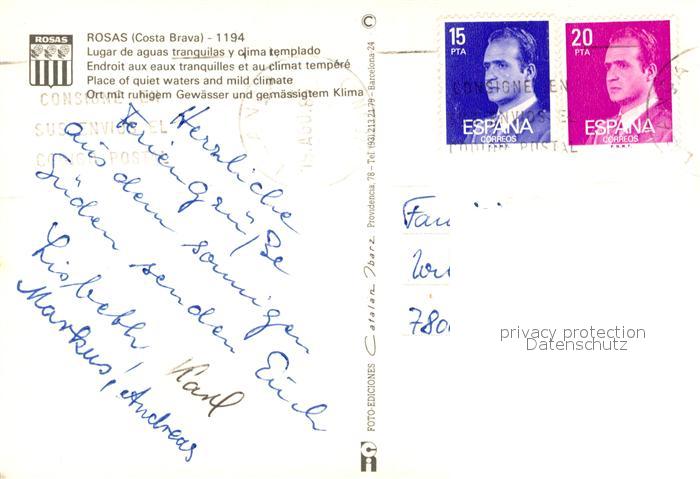 ROSAS
ROSAS (Costa Brava) - 1194
Lugar de aguas tranquilas y clima templado
Endroit aux eaux tranquilles et au climat tempéré
Place of quiet waters and mild climate
Ort mit ruhigem Gewässer und gemässigtem Klima
CONSIGNE EN
SUS ENVIOS EL
CODIGO POSTAL
Herzliche
Feriengrüße
aus dem sonnigen
Süden senden Euch
Lisbeth, Karl
Markus, Andreas
FOTO-EDICIONES Catalan Ibarz Providencia, 78 - Tel. (93) 213 21 79 - Barcelona-24
ci
15
PTA
ESPAÑA
CORREOS
F.N.M.T.
20
PTA
ESPAÑA
CORREOS
F.N.M.T.
CONSIGNE EN
SUS ENVIOS EL
CODIGO POSTAL
Fam
780
privacy protection
Datenschutz